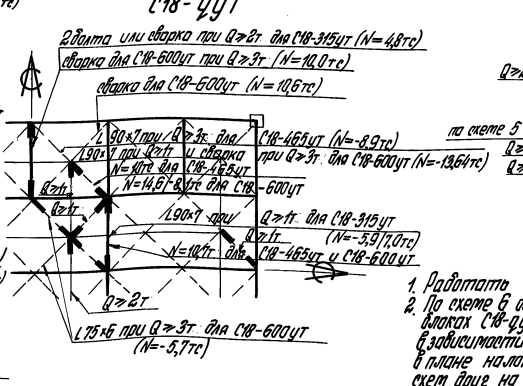 С18-ЦУ1
2 болта или сварка при Q≥2т для С18-315ут (N=4,8тс)
сварка для С18-600ут при Q≥3т (N=10,0тс)
сварка для С18-600ут (N=10,6тс)
L90×7 при Q≥3т для С18-465ут (N=-8,9тс)
L90×7 при Q≥1т и сварка при Q≥3т для С18-600ут (N=-13,64тс)
N=10тс для С18-465ут
N=14,6-8,1тс для С18-600ут
по схеме 5
Q≥
Q≥
Q≥
Q≥1т
Q≥1т
L90×7 при Q≥1т для С18-315ут
Q≥1т (N=-5,9/7,0тс)
N=10,7т для С18-465ут и С18-600ут
Q≥2т
L75×6 при Q≥3т для С18-600ут
(N=-5,7тс)
1. Работать
2. По схеме 6
блоках С18-
в зависимости
в плане нала
схем друг на